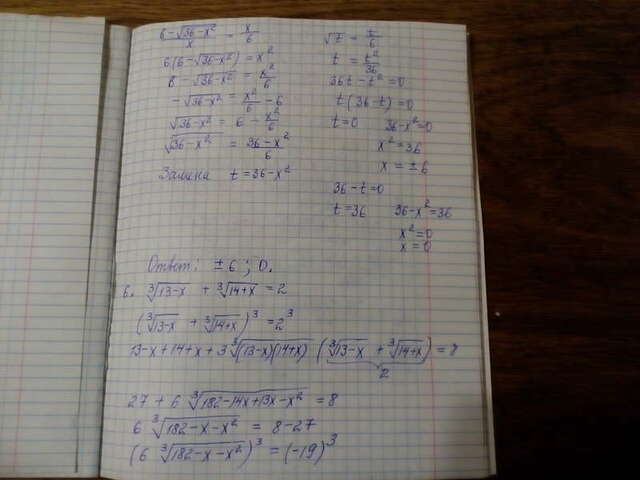 (6-√(36-x²))/x = x/6
6(6-√(36-x²)) = x²
6-√(36-x²) = x²/6
-√(36-x²) = x²/6 - 6
√(36-x²) = 6 - x²/6
√(36-x²) = (36-x²)/6
Замена t=36-x²
√t = t/6
t = t²/36
36t-t²=0
t(36-t)=0
t=0 36-x²=0
x²=36
x=±6
36-t=0
t=36 36-x²=36
x²=0
x=0
Ответ: ±6; 0.
6. ∛(13-x) + ∛(14+x) = 2
(∛(13-x) + ∛(14+x))³ = 2³
13-x+14+x+3∛((13-x)(14+x)) (∛(13-x) + ∛(14+x)) = 8
2
27 + 6 ∛(182-14x+13x-x²) = 8
6 ∛(182-x-x²) = 8-27
(6 ∛(182-x-x²))³ = (-19)³